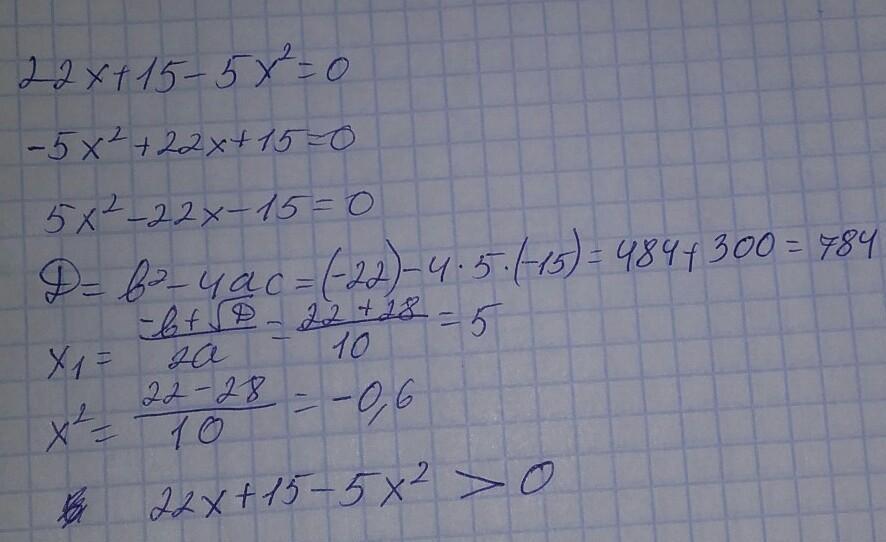 22x+15-5x²=0
-5x²+22x+15=0
5x²-22x-15=0
D=b²-4ac=(-22)-4·5·(-15)=484+300=784
x₁=(-b+√D)/2a=(22+28)/10=5
x²=(22-28)/10=-0,6
22x+15-5x²>0